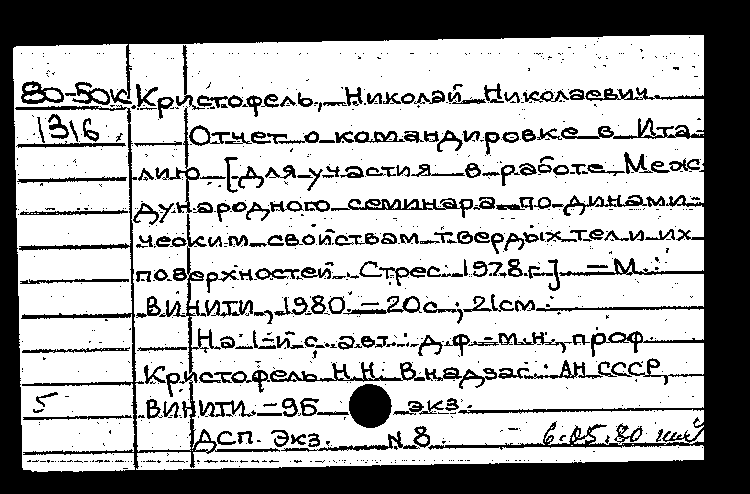 80-50к Кристофель, Николай Николаевич.
1316 Отчет о командировке в Ита-
лию [для участия в работе Меж-
дународного семинара по динами-
ческим свойствам твердых тел и их
поверхностей. Стрес. 1978г.] – М.:
ВИНИТИ, 1980. – 20с.; 21см.
На 1-й с. авт.: д.ф.-м.н., проф.
Кристофель Н.Н. В надзаг.: АН СССР,
5 ВИНИТИ. – 95 экз.
ДСП. Экз. N 8. 6.05.80